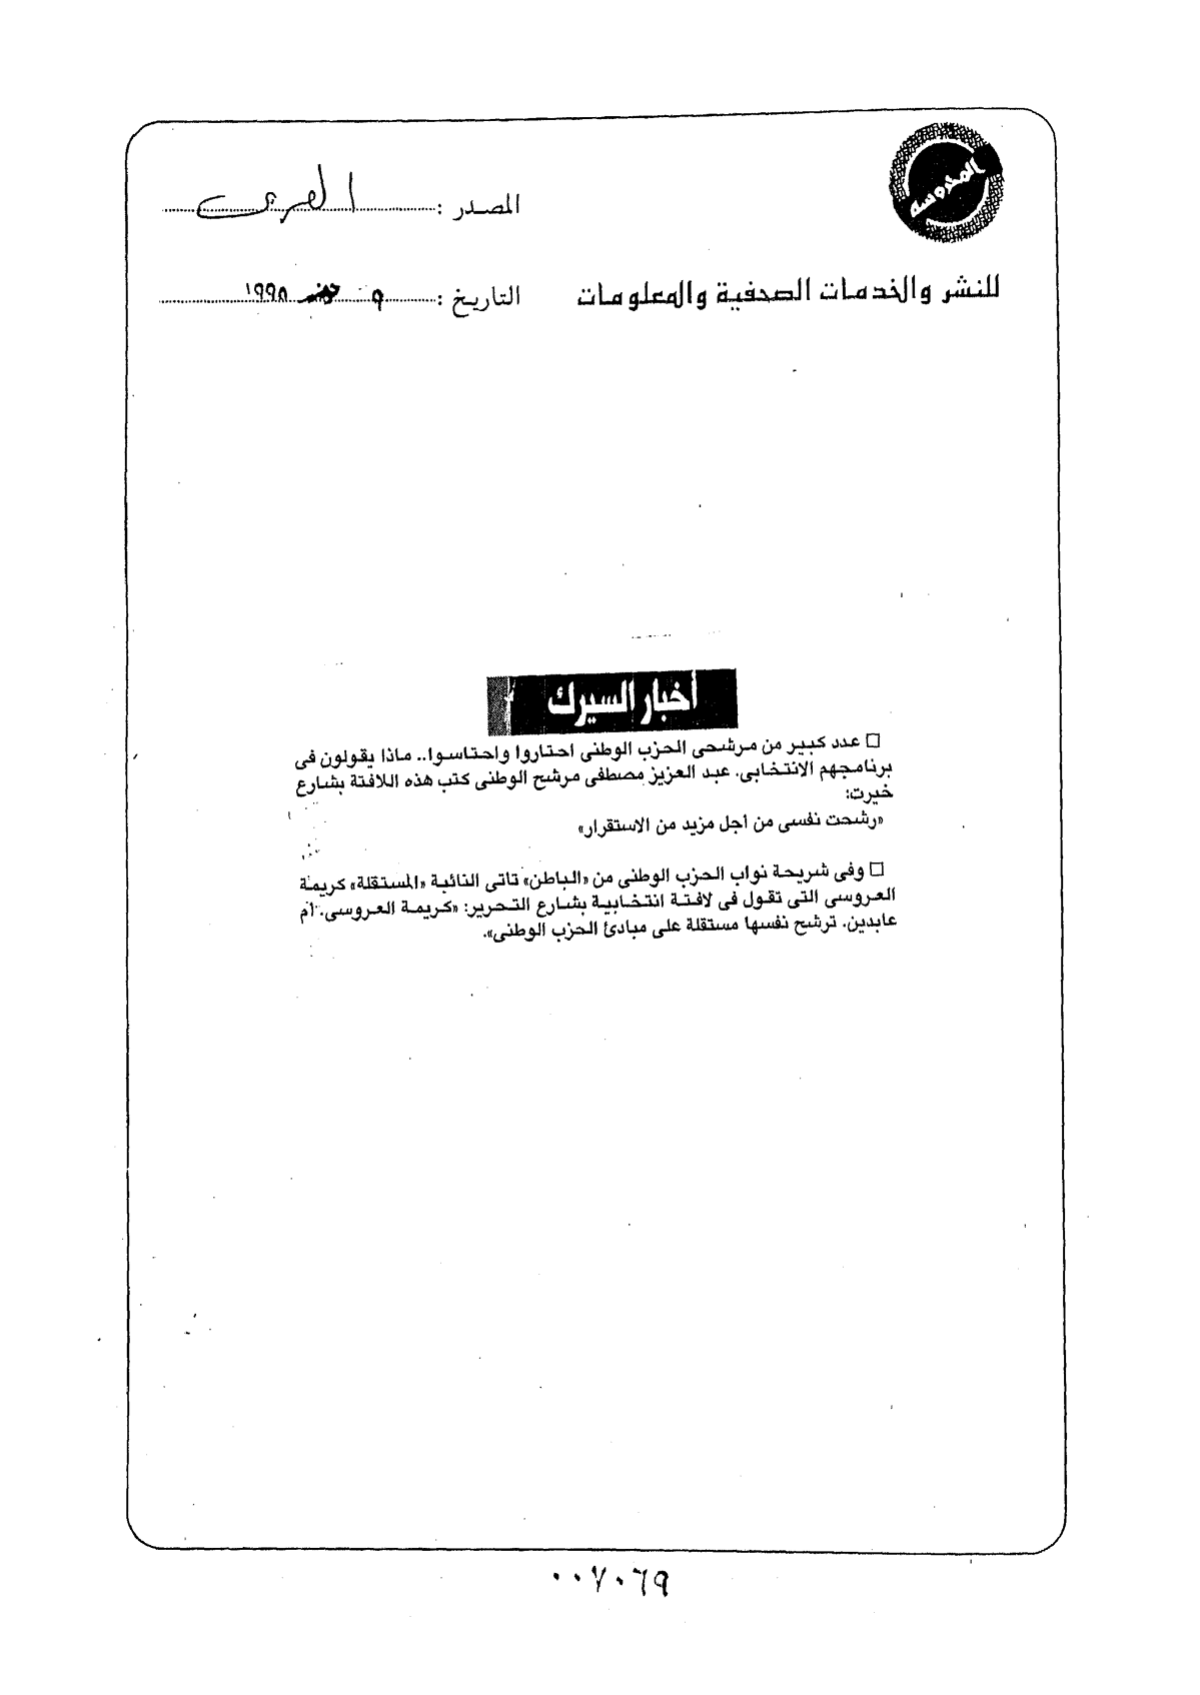 المحروسة
المصدر : العربى
للنشر والخدمات الصحفية والمعلومات
التاريخ : ٩ ١٩٩٨
أخبار السيرك
□ عدد كبير من مرشحى الحزب الوطنى احتاروا واحتاسوا.. ماذا يقولون فى
برنامجهم الانتخابى. عبد العزيز مصطفى مرشح الوطنى كتب هذه اللافتة بشارع
خيرت:
«رشحت نفسى من أجل مزيد من الاستقرار»
□ وفى شريحة نواب الحزب الوطنى من «الباطن» تاتى النائبة «المستقلة» كريمة
العروسى التى تقول فى لافتة انتخابية بشارع التحرير: «كريمة العروسى. أم
عابدين. ترشح نفسها مستقلة على مبادئ الحزب الوطنى».
٠٠٧٠٦٩